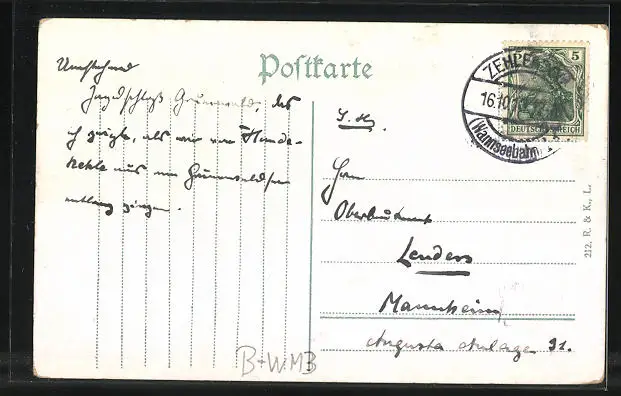 Postkarte
Umstehend
Jagdschloß Grunewald, das
ich zeigte, als wir von Hunde-
kehle aus am Grunewaldsee
entlang gingen.
S. H.
Herrn
Oberleutnant
Lenders
Mannheim
Augusta Anlage 31.
ZEHLENDORF
16.10
(Wannseebahn)
5
DEUTSCHES REICH
212. R. & K., L.
B+W.MB